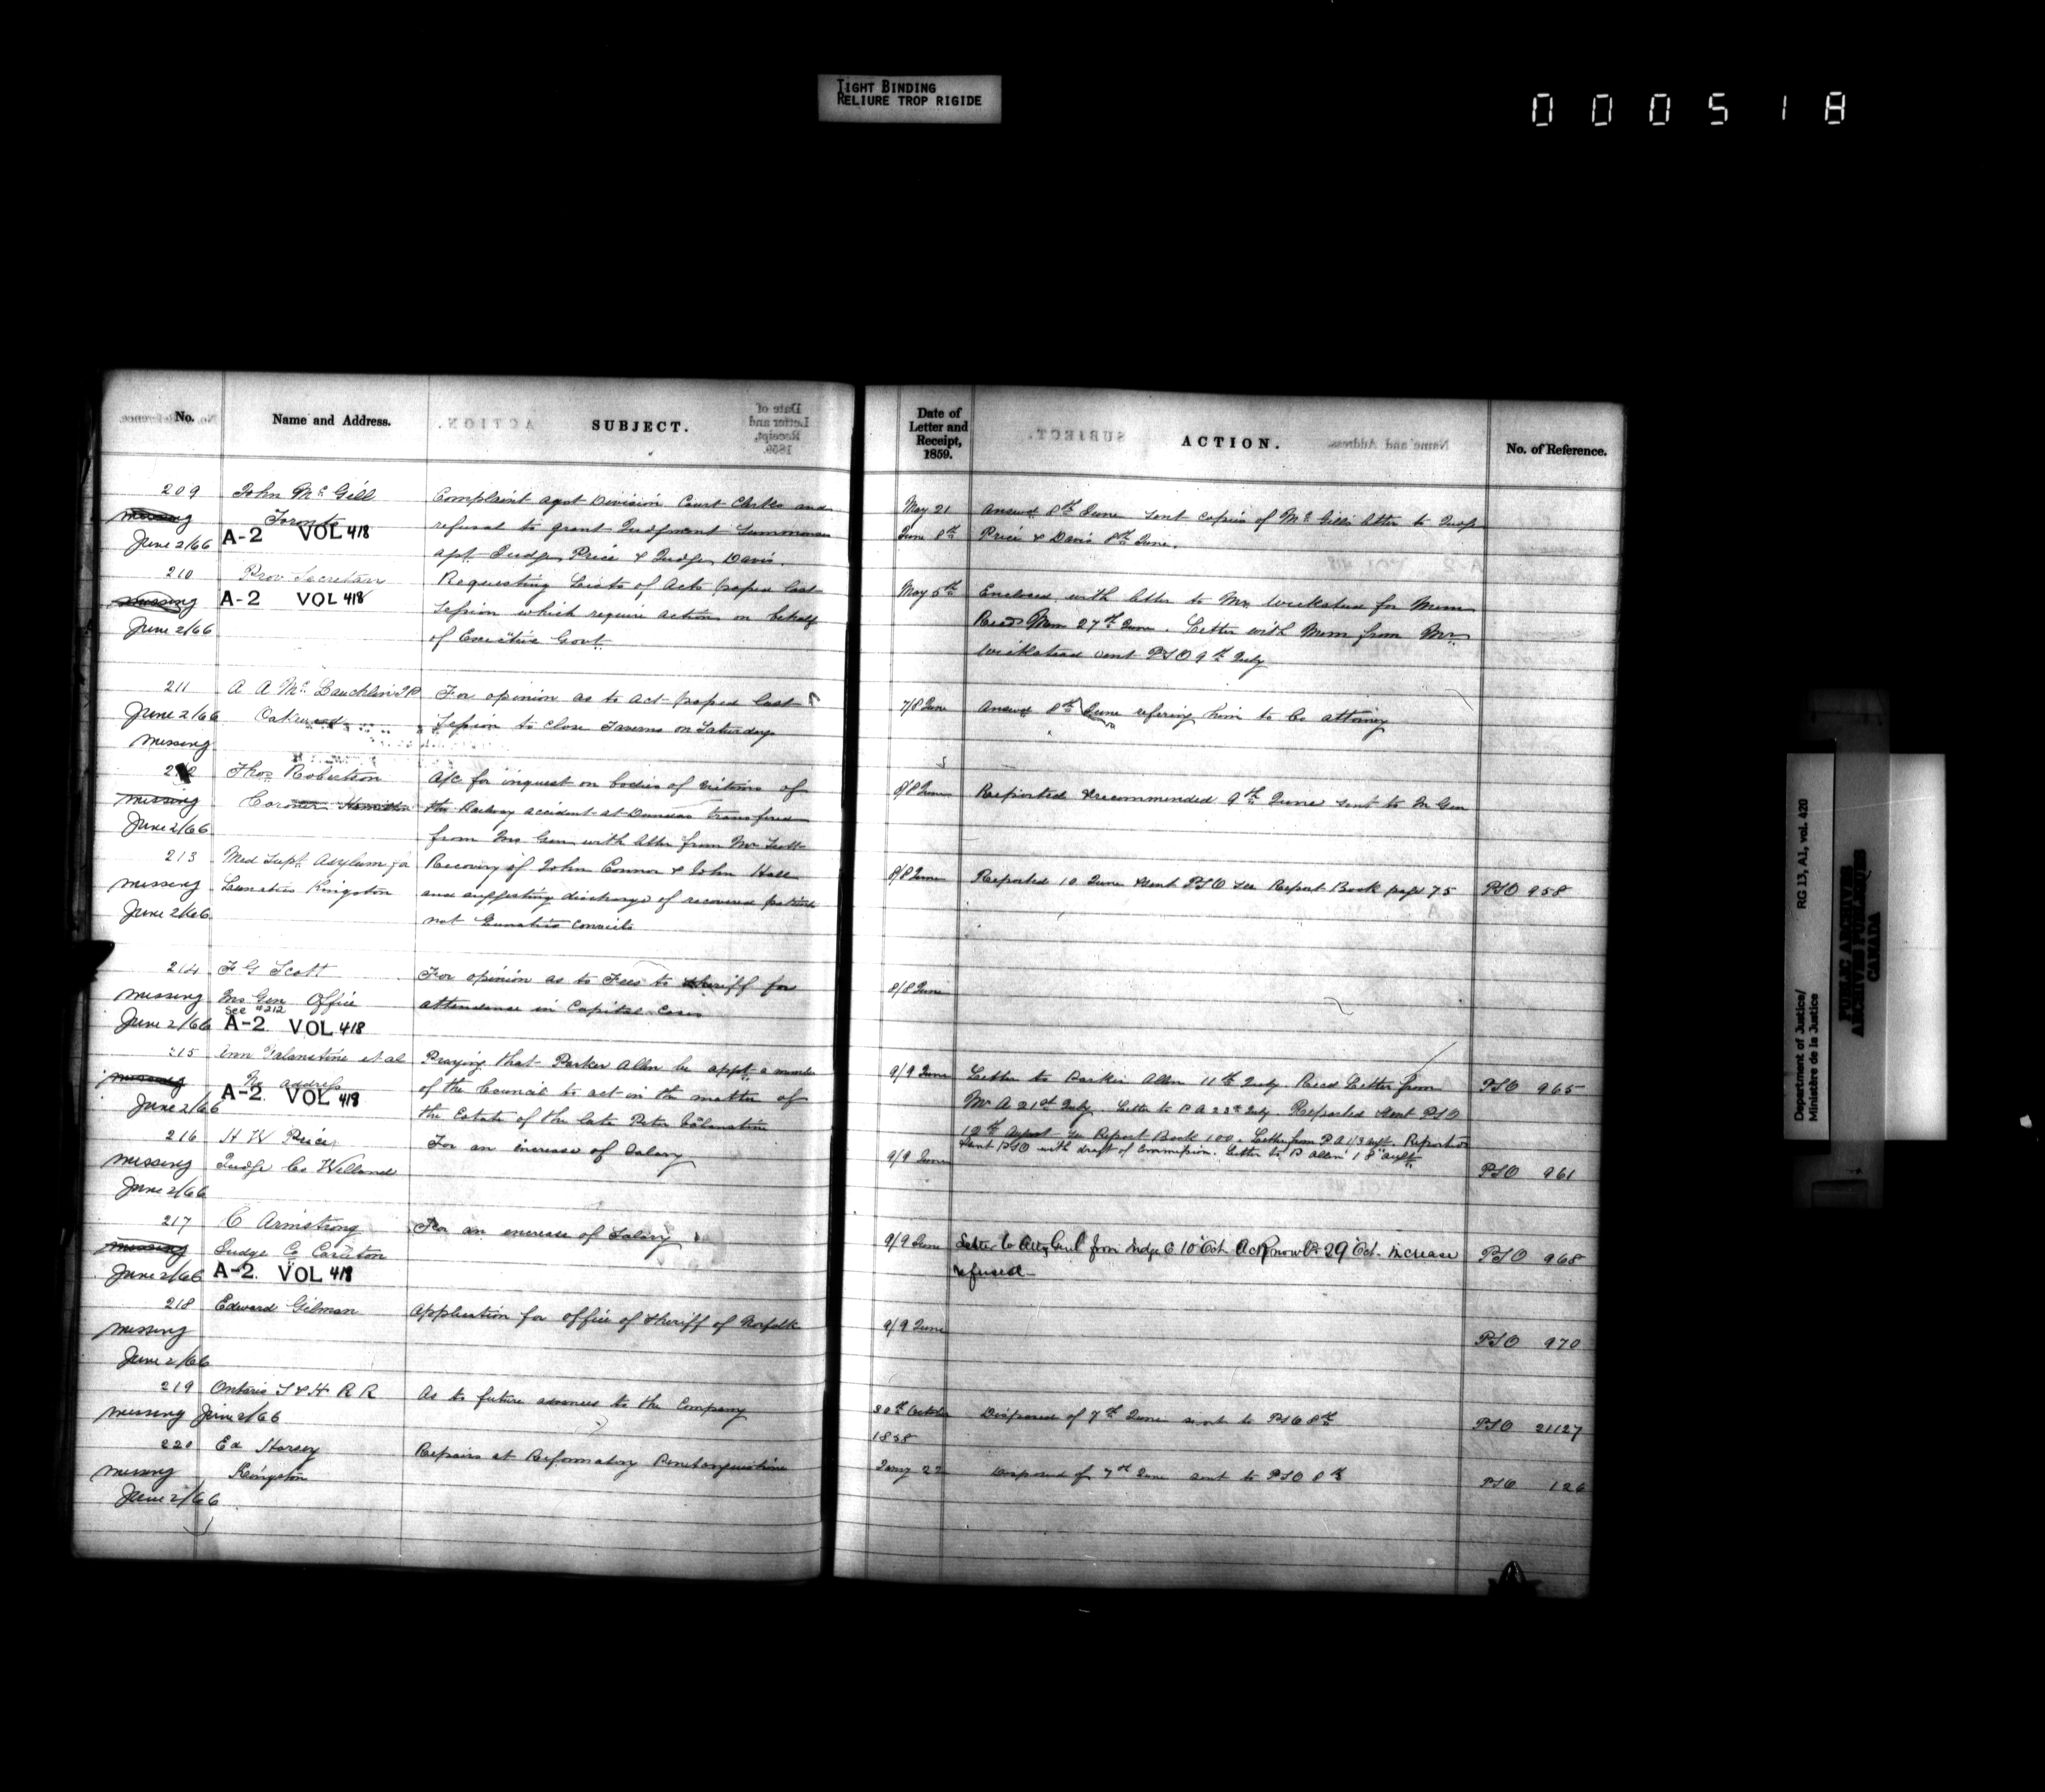 TIGHT BINDING
RELIURE TROP RIGIDE
000518
No.
Name and Address.
SUBJECT.
209
John Mc Gill
Complaint agst Division Court Clerks and
missing
Toronto
refusal to grant Judgment Summonses
June 2/66
A-2 VOL 418
agt Judge Price & Judge Davis.
210
Prov Secretary
Requesting Lists of Acts passed last
missing
A-2 VOL 418
Session which require action on behalf
June 2/66
of Executive Govt.
211
A A Mc Lauchlin JP
For opinion as to act passed last
June 2/66
Oakwood
Session to close Taverns on Saturdays
missing
212
Thos Robertson
A/c for inquest on bodies of victims of
missing
Coroner Hamilton
the Railway accident at Dundas transferred
June 2/66
from Ins Gen with letter from Mr Scott
213
Med Supt Asylum for
Recovery of John Connor & John Hall
missing
Lunatics Kingston
and suggesting discharge of recovered patients
June 2/66
not Lunatic convicts
214
F G Scott
For opinion as to Fees to Sheriff for
missing
Ins Gen Office
attendance in Capital Cases
see #212
June 2/66
A-2. VOL 418
215
Ann Valanstine et al
Praying that Parker Allen be appt a member
missing
No address
of the Council to act in the matter of
A-2. VOL 418
June 2/66
the Estate of the late Peter Valanstine
216
H W Price
For an increase of Salary
missing
Judge Co Welland
June 2/66
217
C Armstrong
For an increase of Salary
missing
Judge Co Carleton
June 2/66
A-2. VOL 418
218
Edward Gilman
Application for office of Sheriff of Norfolk
missing
June 2/66
219
Ontario S & H R R
As to future advances to the Company
missing June 2/66
220
Ed Horsey
Repairs at Reformatory Penetanguishine
missing
Kingston
June 2/66
Date of
Letter and
Receipt,
1859.
ACTION.
No. of Reference.
May 21
Answd 8th June sent copies of Mc Gills letter to Judge
June 8th
Price & Davis 8th June.
May 5th
Enclosed with letter to Mr Wicksteed for Mem
Recd Mem 27th June. Letter with Mem from Mr
Wicksteed sent PSO 9th July
7/8 June
Answd 8th June refering him to Co attorney
8/8 June
Reported & recommended 9th June sent to In Gen
8/8 June
Reported 10 June sent PSO see Report Book page 75
PSO 958
8/8 June
9/9 June
Letter to Parker Allen 11th July. Recd Letter from
PSO 965
Mr A 21st July. Letter to P A 23rd July. Reported sent PSO
12th August see Report Book 100. Letter from P A 1/3 augt. Reported
sent PSO with draft of Commission. Letter to P Allen 18 augt.
9/9 June
PSO 961
9/9 June
Letter to Atty Genl from Judge C 10 Oct. Acknowld 29 Oct. increase
PSO 968
refused
9/9 June
PSO 970
30th October
Disposed of 7th June sent to PSO 8th
PSO 21127
1858
Jany 22
Disposed of 7th June sent to PSO 8th
PSO 126
Department of Justice/
Ministère de la Justice
RG 13, A1, vol. 420
PUBLIC ARCHIVES
ARCHIVES PUBLIQUES
CANADA